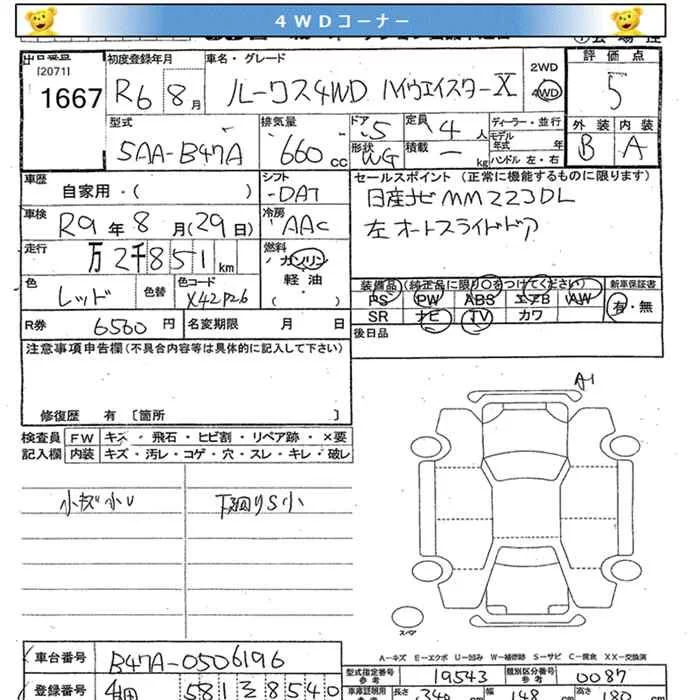 4WDコーナー
出品番号 初度登録年月 車名・グレード 2WD 4WD 評価点
[2071]
1667 R6 8月 ルークス4WD ハイウェイスターX 5
型式 排気量 ドア 5 定員 4人 ディーラー・並行 外装 内装
5AA-B47A 660cc 形状 WG 積載 ー kg モデル年式 年 B A
ハンドル 左・右
車歴 シフト セールスポイント (正常に機能するものに限ります)
自家用・( ) DAT 日産ナビ MM223DL
車検 R9年8月(29日) 冷房 AAC 左オートスライドドア
走行 万2千851km 燃料 ガソリン・軽油・( )
色 レッド 色替 色コード X42P26 装備品 (純正品に限り○をつけてください) 新車保証書
PS PW ABS エアB AW 有・無
R券 6560円 名変期限 月 日 SR ナビ TV カワ
注意事項申告欄(不具合内容等は具体的に記入して下さい) 後日品
修復歴 有 [箇所 ]
A1
検査員 FW キズ・飛石・ヒビ割・リペア跡・×要
記入欄 内装 キズ・汚レ・コゲ・穴・スレ・キレ・破レ
小キズ小U 下廻りS小
スペア
A-キズ E-エクボ U-凹み W-補修跡 S-サビ C-腐食 XX-交換済
車台番号 B47A-0506196 型式指定番号 参考 19543 類別区分番号 参考 0087
登録番号 581 8540 車庫証明用 長さ 340cm 幅 148cm 高さ 188cm